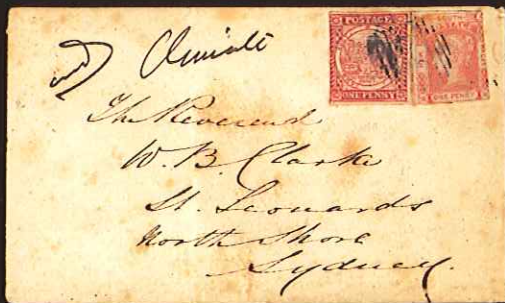 POSTAGE
ONE PENNY
ONE PENNY
The Reverend
W. B. Clarke
St. Leonards
North Shore
Sydney.